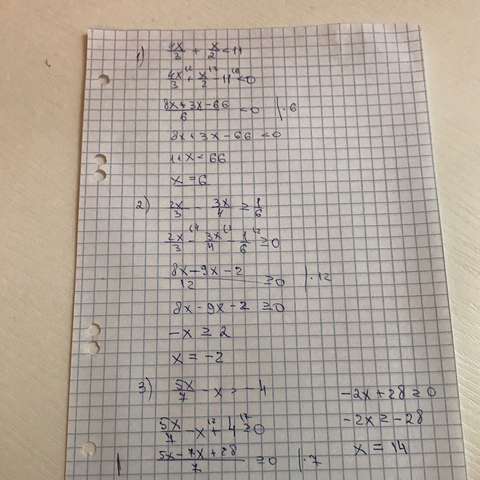 1) 4x/3 + x/2 < 11
4x/3 + x/2 - 11 < 0
8x+3x-66/6 < 0 |·6
8x+3x-66 < 0
11x < 66
x = 6
2) 2x/3 - 3x/4 ≥ 1/6
2x/3 - 3x/4 - 1/6 ≥ 0
8x-9x-2/12 ≥ 0 |·12
8x-9x-2 ≥ 0
-x ≥ 2
x = -2
3) 5x/7 - x > -4
5x/7 - x + 4 ≥ 0
5x-7x+28/7 ≥ 0 |·7
-2x+28 ≥ 0
-2x ≥ -28
x = 14